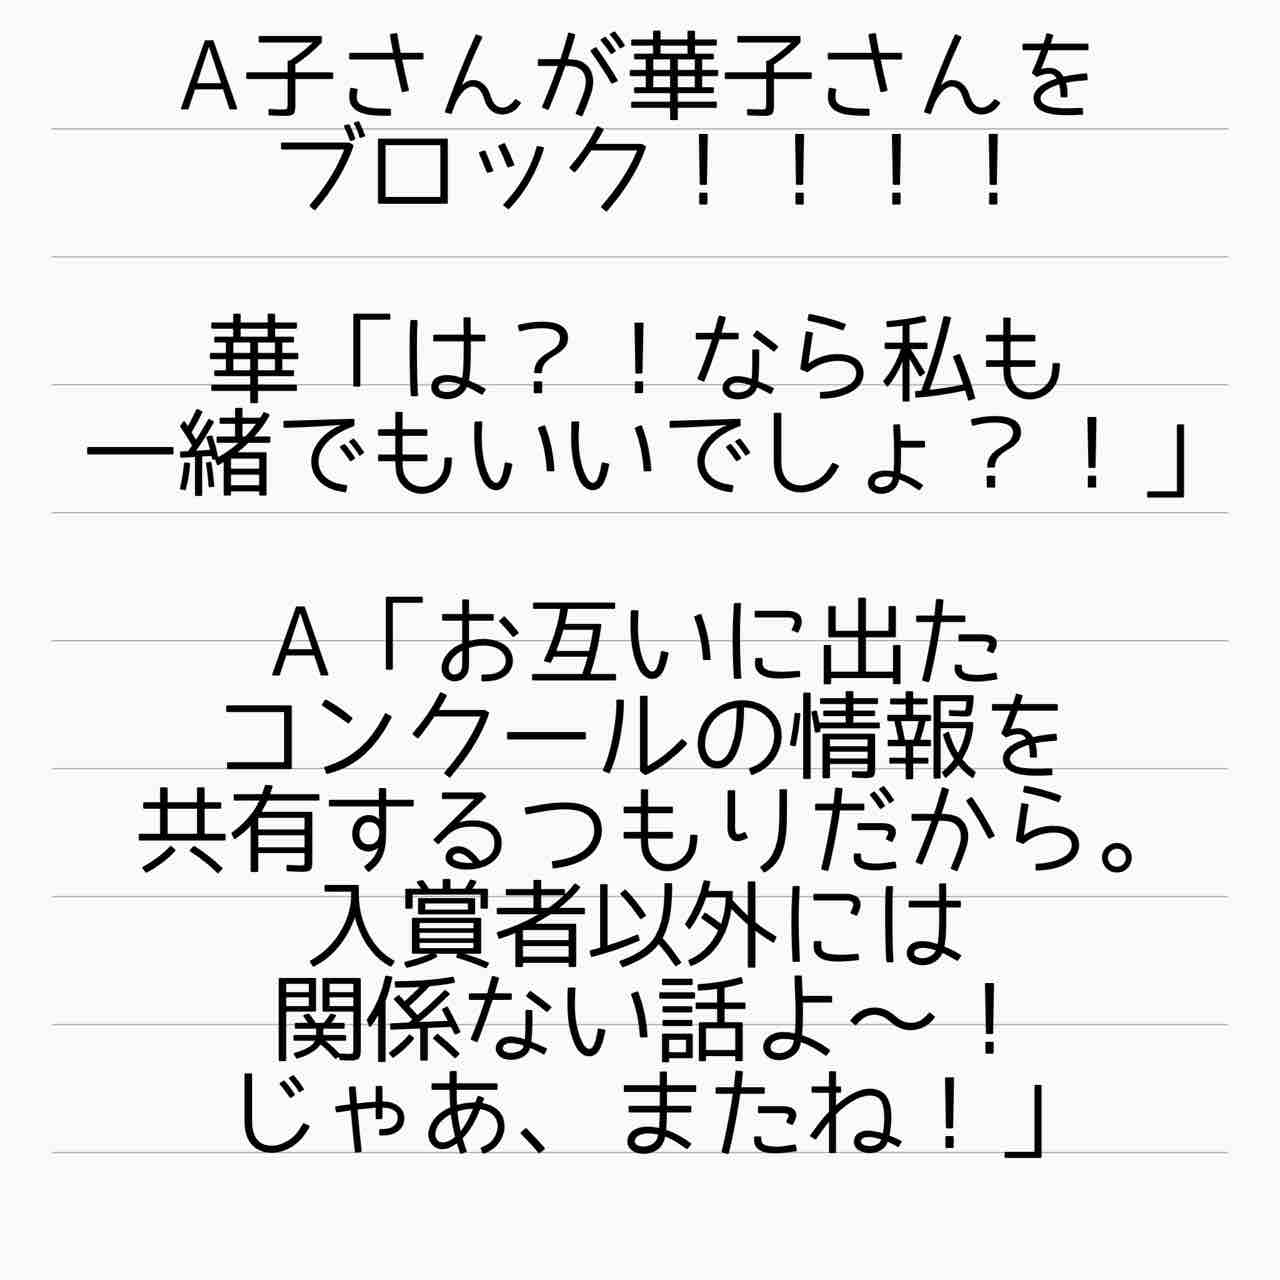 A子さんが華子さんを
ブロック！！！！
華「は？！なら私も
一緒でもいいでしょ？！」
A「お互いに出た
コンクールの情報を
共有するつもりだから。
入賞者以外には
関係ない話よ〜！
じゃあ、またね！」